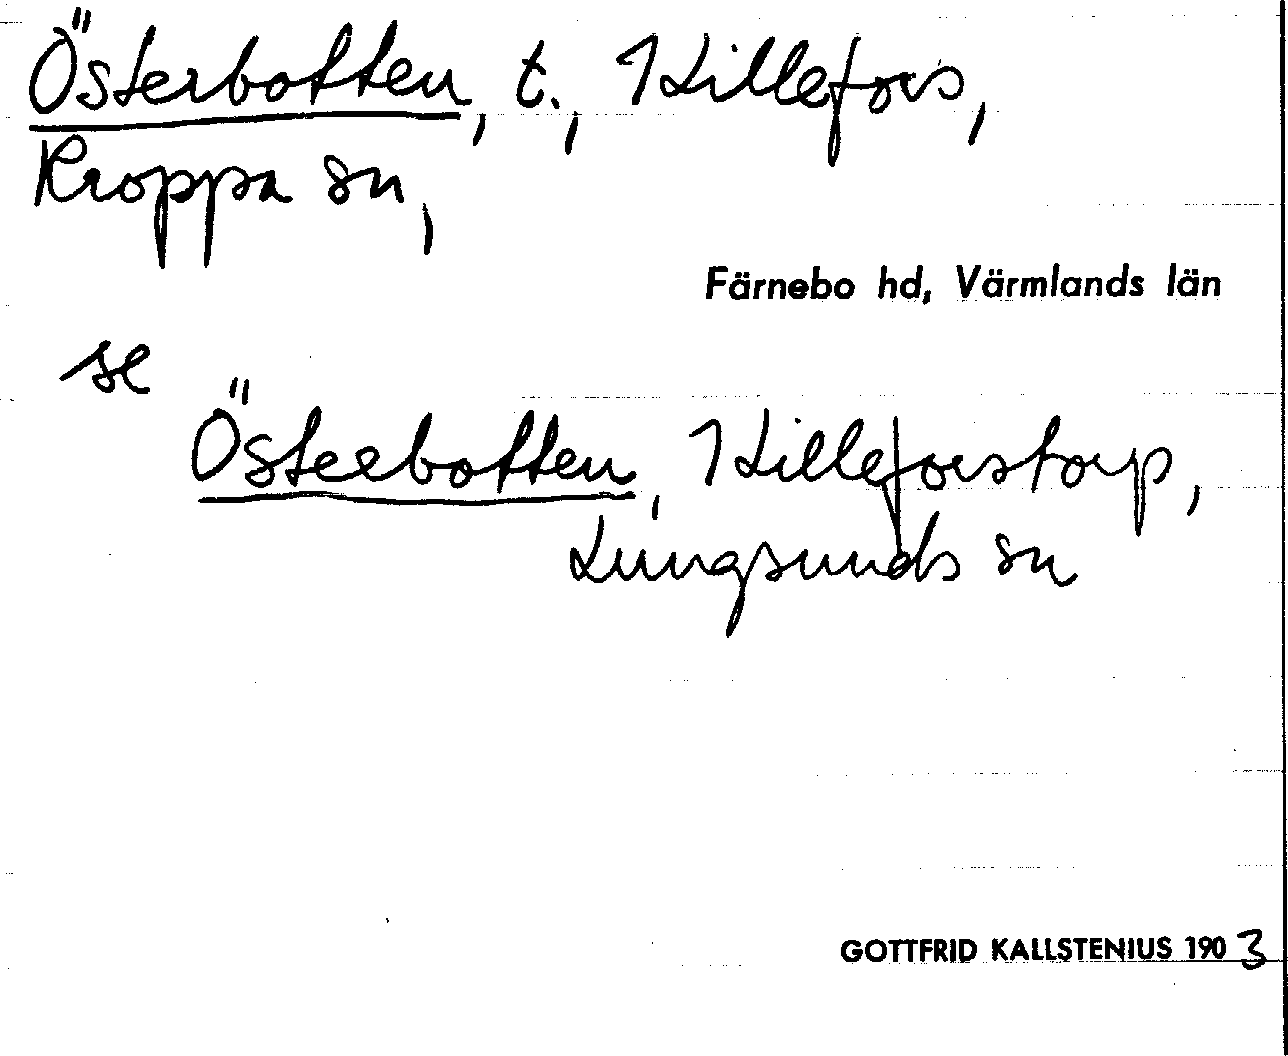 Österbotten, t., Hillefors,
Kroppa sn,
Färnebo hd, Värmlands län
se
Österbotten, Hilleforstorp,
Lungsunds sn
GOTTFRID KALLSTENIUS 1903